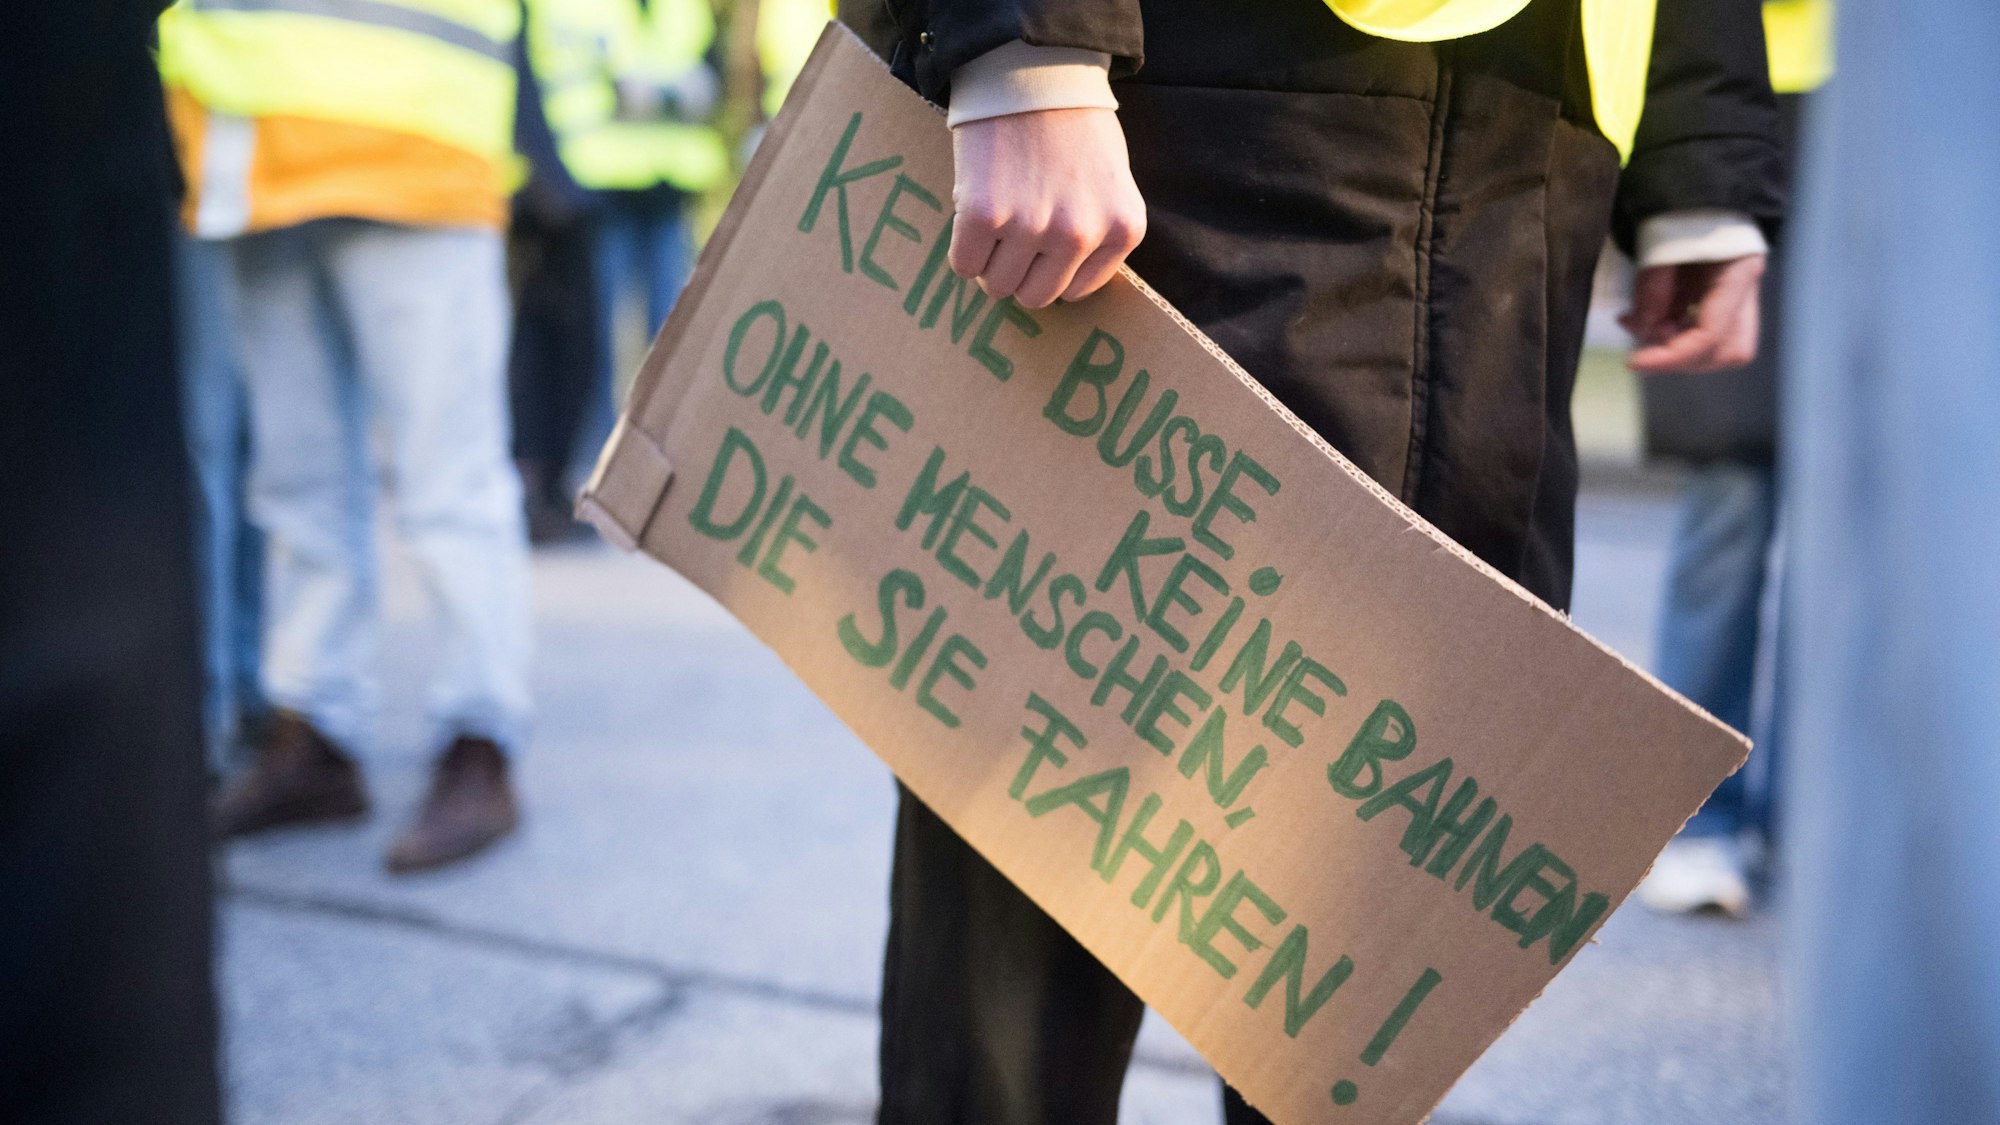 KEINE BUSSE. KEINE BAHNEN
OHNE MENSCHEN,
DIE SIE FAHREN!